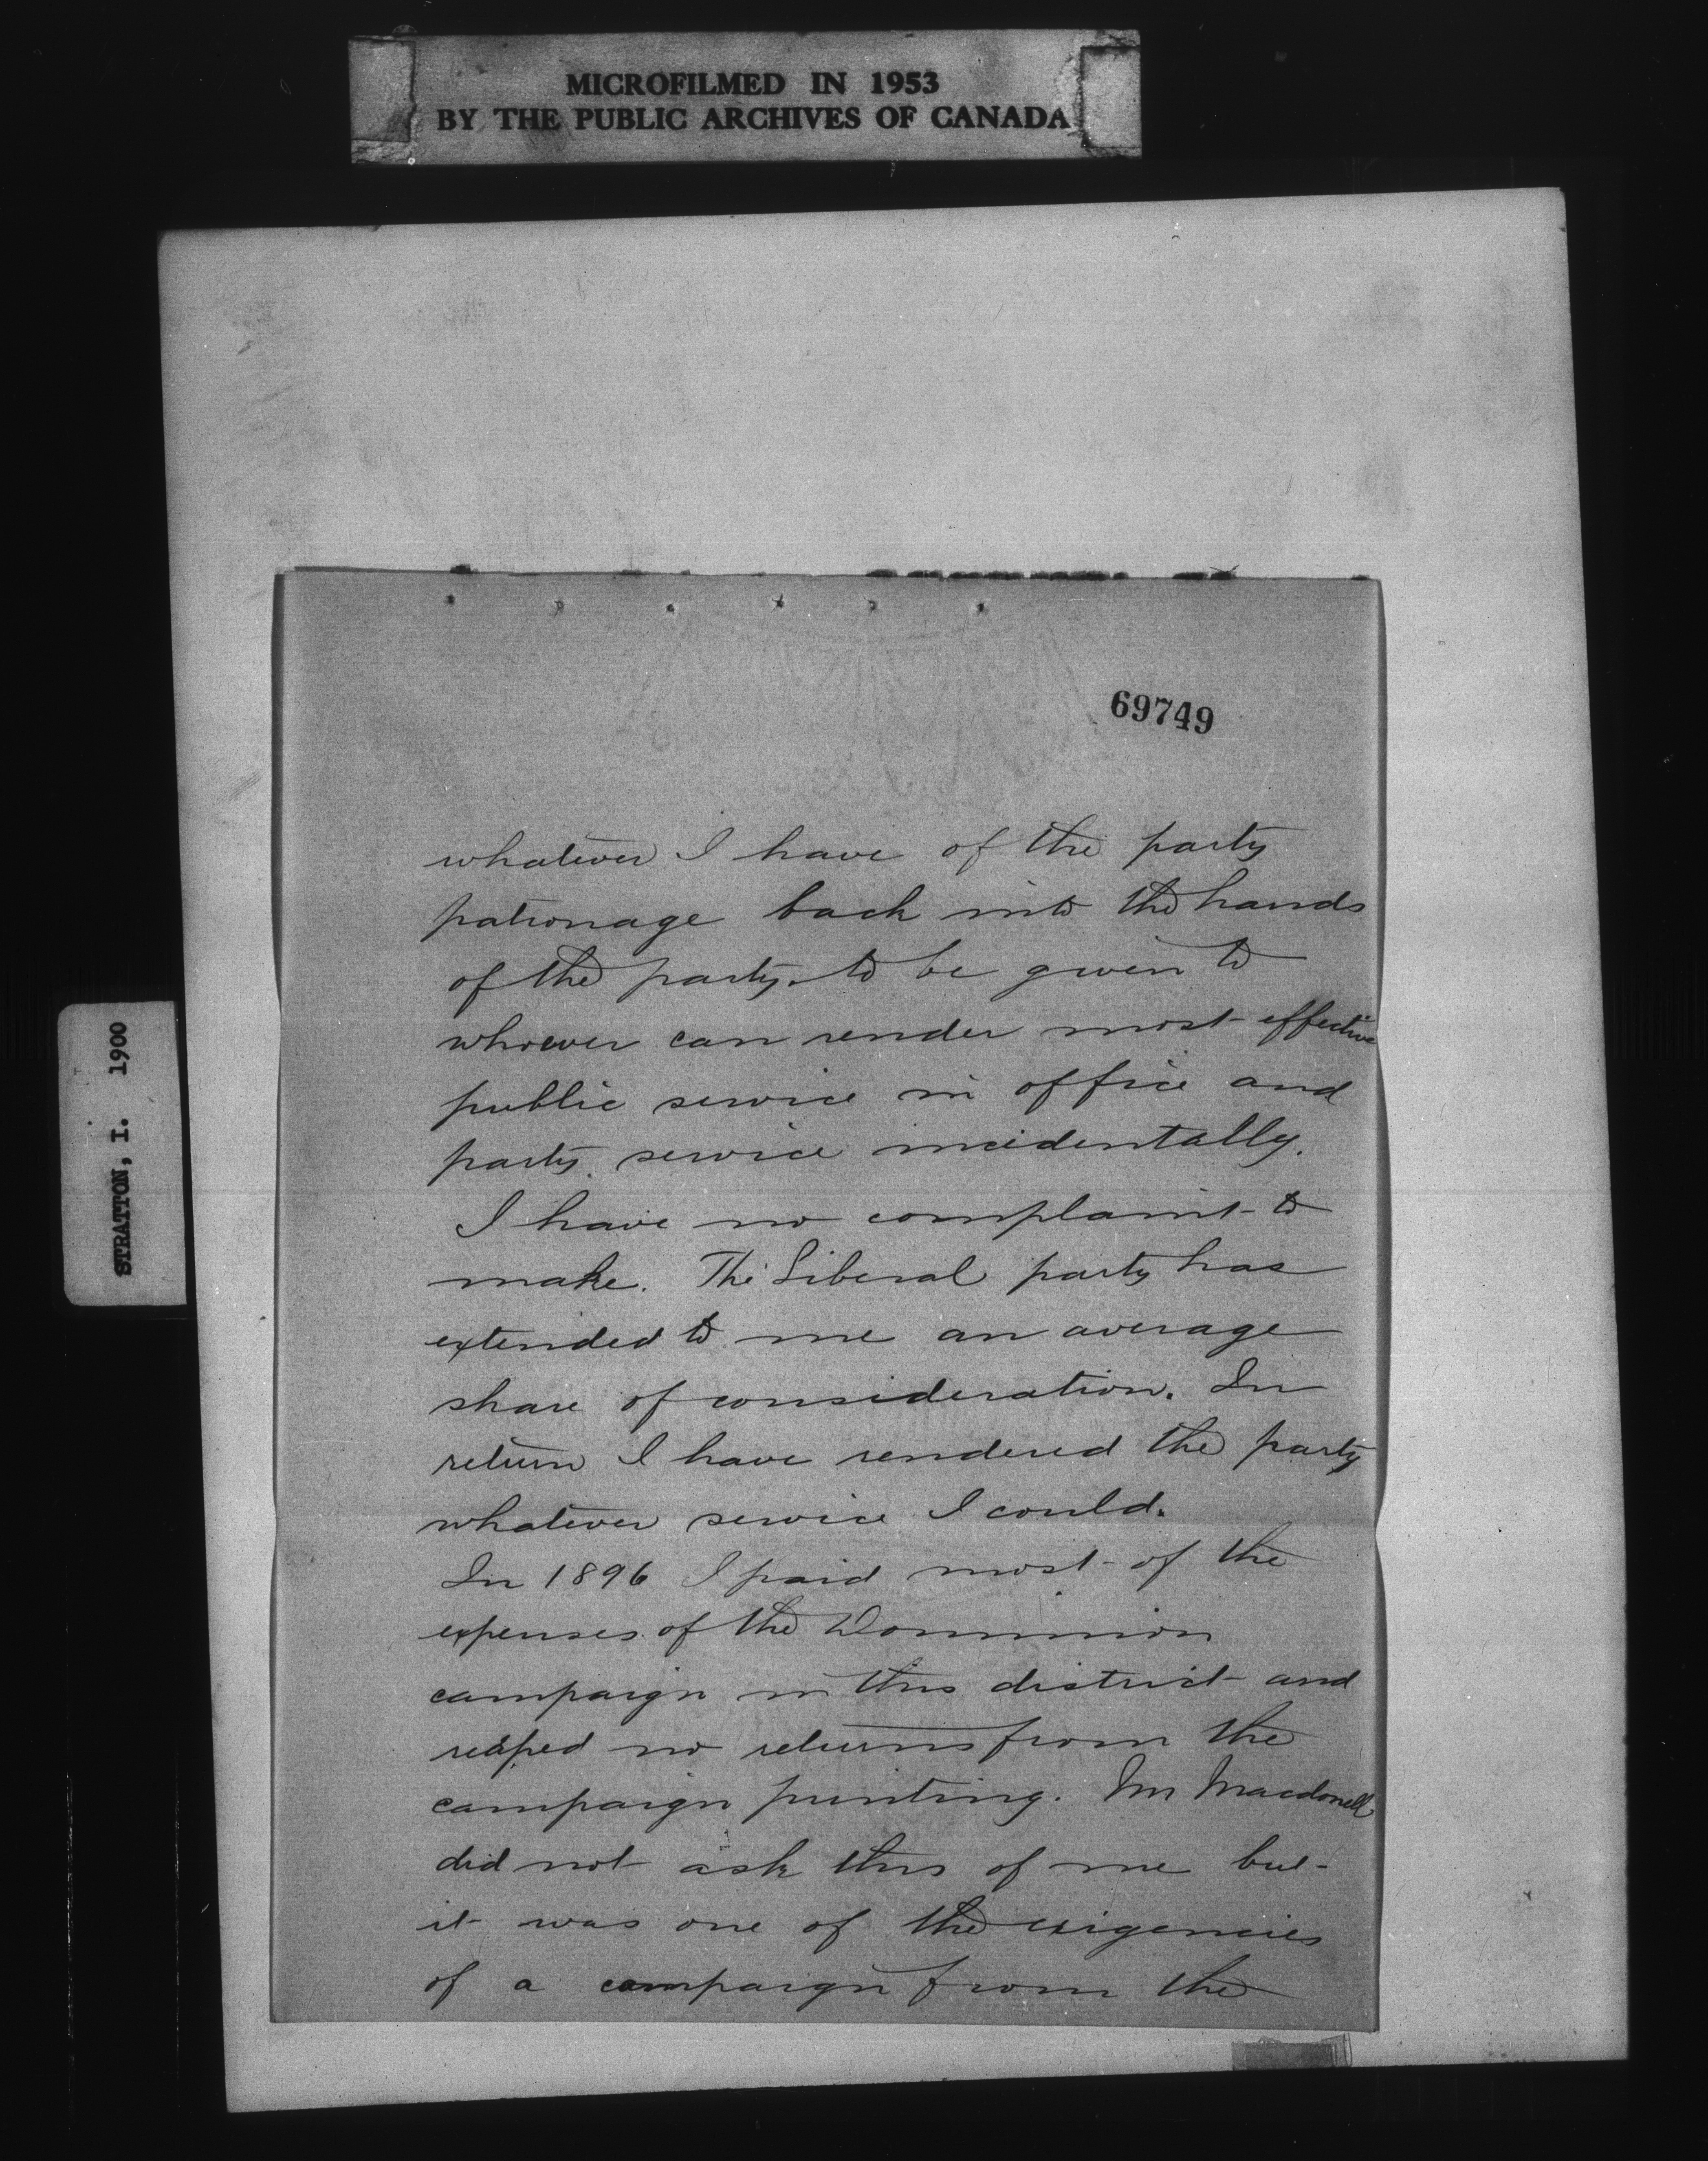 MICROFILMED IN 1953
BY THE PUBLIC ARCHIVES OF CANADA
STRATTON, I. 1900
69749
whatever I have of the party
patronage back into the hands
of the party, to be given to
whoever can render most effective
public service in office and
party service incidentally.
I have no complaint to
make. The Liberal party has
extended to me an average
share of consideration. In
return I have rendered the party
whatever service I could.
In 1896 I paid most of the
expenses of the Dominion
campaign in this district and
reaped no returns from the
campaign printing. Mr Macdonell
did not ask this of me but
it was one of the exigencies
of a campaign from the